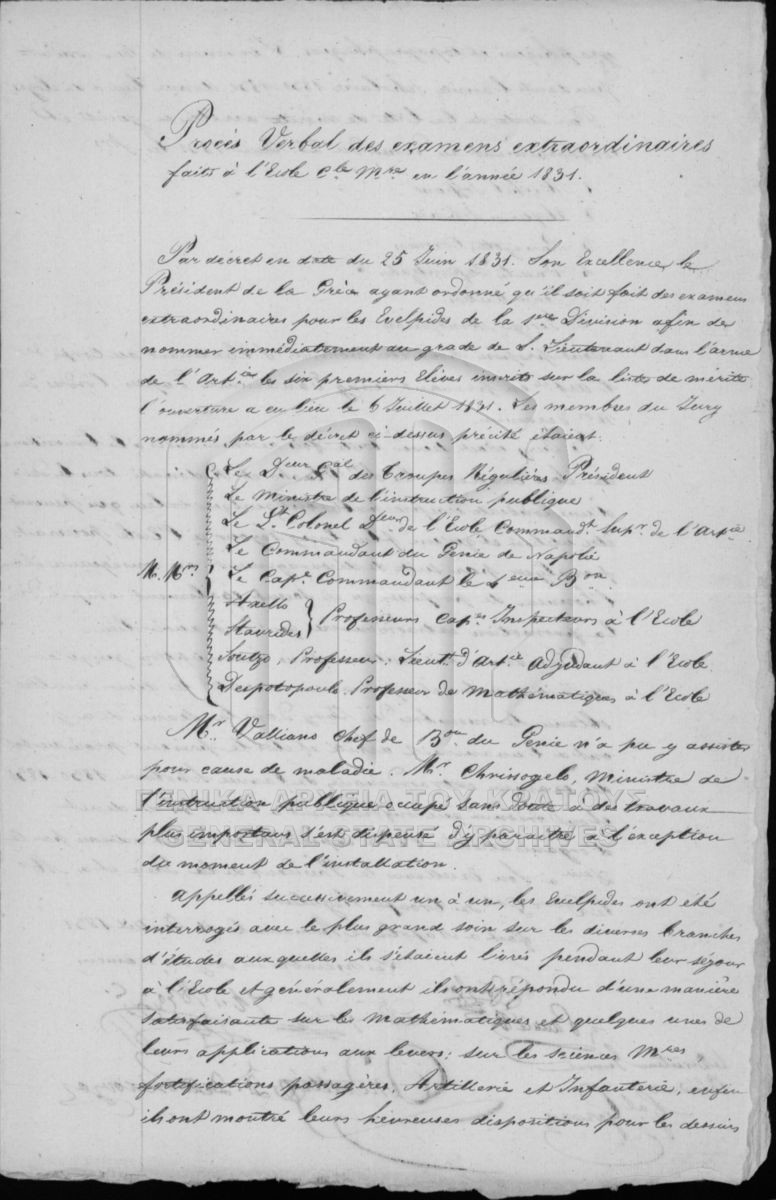 Procès Verbal des examens extraordinaires
faits à l'Ecole Cle Mre en l'année 1831.
Par décret en date du 25 Juin 1831. Son Excellence le
Président de la Grèce ayant ordonné qu'il soit fait des examens
extraordinaires pour les Evelpides de la 1ere Division afin de
nommer immédiatement au grade de S. Lieutenant dans l'arme
de l'Artie les six premiers Elèves inscrits sur la liste de mérite
l'ouverture a eu lieu le 6 Juillet 1831. Les membres du Jury
nommés par le décret ci-dessus précité étaient.
Le Deur Gal des Troupes Régulières Président
Le Ministre de l'instruction publique
Le Lt Colonel Deur de l'Ecole Commandt Supr de l'Artie
Le Commandant du Génie de Napolie
M. Mrs Le Cape Commandant le 4eme Bon
Axello
Stavrides } Professeurs Capes Inspecteurs à l'Ecole
Soutzo, Professeur: Lieutt d'Artie Adjudant à l'Ecole
Despotopoulo Professeur de Mathématiques à l'Ecole
Mr Valliano Chef de Bon du Génie n'a pu y assister
pour cause de maladie. Mr Chrisogelo, Ministre de
l'instruction publique ocupé sans doute à des travaux
plus importans s'est dispensé d'y paraitre à l'exception
du moment de l'installation.
Appellés successivement un à un, les Evelpides ont été
interrogés avec le plus grand soin sur les diverses branches
d'études auxquelles ils s'étaient livrés pendant leur séjour
à l'Ecole et généralement ils ont répondu d'une manière
satisfaisante sur les Mathématiques et quelques unes de
leurs applications aux levers: sur les sciences Mres
fortifications passagères, Artillerie et Infanterie, enfin
ils ont montré leurs heureuses dispositions pour les dessins
ΓΕΝΙΚΑ ΑΡΧΕΙΑ ΤΟΥ ΚΡΑΤΟΥΣ
GENERAL STATE ARCHIVES